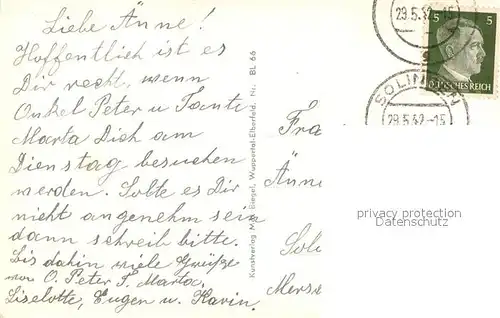 Liebe Änne!
Hoffentlich ist es
Dir recht, wenn
Onkel Peter u. Tante
Marta Dich am
Dienstag besuchen
werden. Sollte es Dir
nicht angenehm sein
dann schreib bitte.
Bis dahin viele Grüße
von O. Peter T. Marta,
Liselotte, Eugen u. Karin.
Kunstverlag M. Biegel, Wuppertal-Elberfeld. Nr. Bl. 66
29.5.42-15
5 5
DEUTSCHES REICH
SOLINGEN
29.5.42-15
Fra
Änne
privacy protection
Datenschutz
Sol
Mers